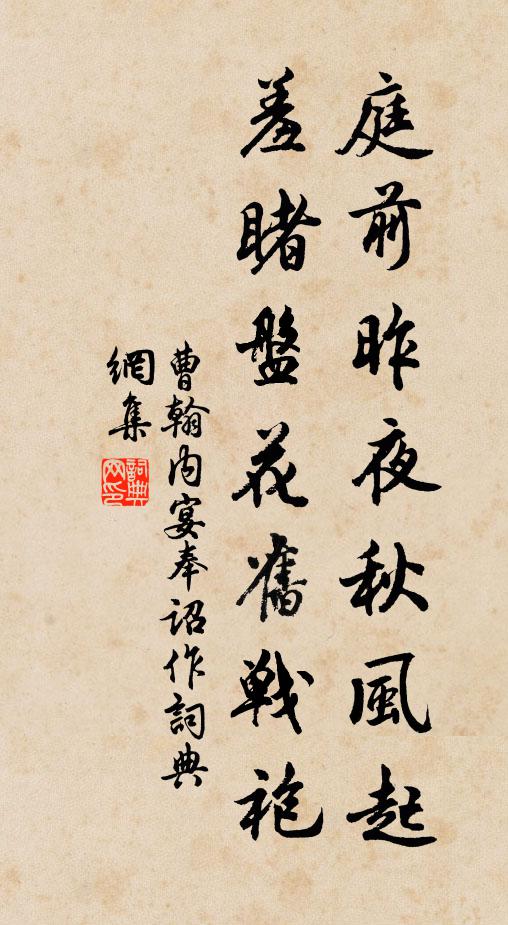 庭前昨夜秋風起
羞睹盤花舊戰袍
曹翰內宴奉詔作詞典
網集
詞典
网印